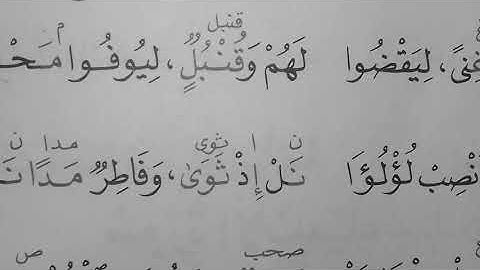 قنبل م
غِنىً، لِيَقْضُوا لَهُمْ وَقُنْبُلٌ، لِيُوفُوا مَحْـ
ن ا ثوى مدا ن
انْصِبْ لُؤْلُؤَا نَلْ إِذْ ثَوَىٰ، وَفَاطِرٌ مَدًا نَـ
صحب ص